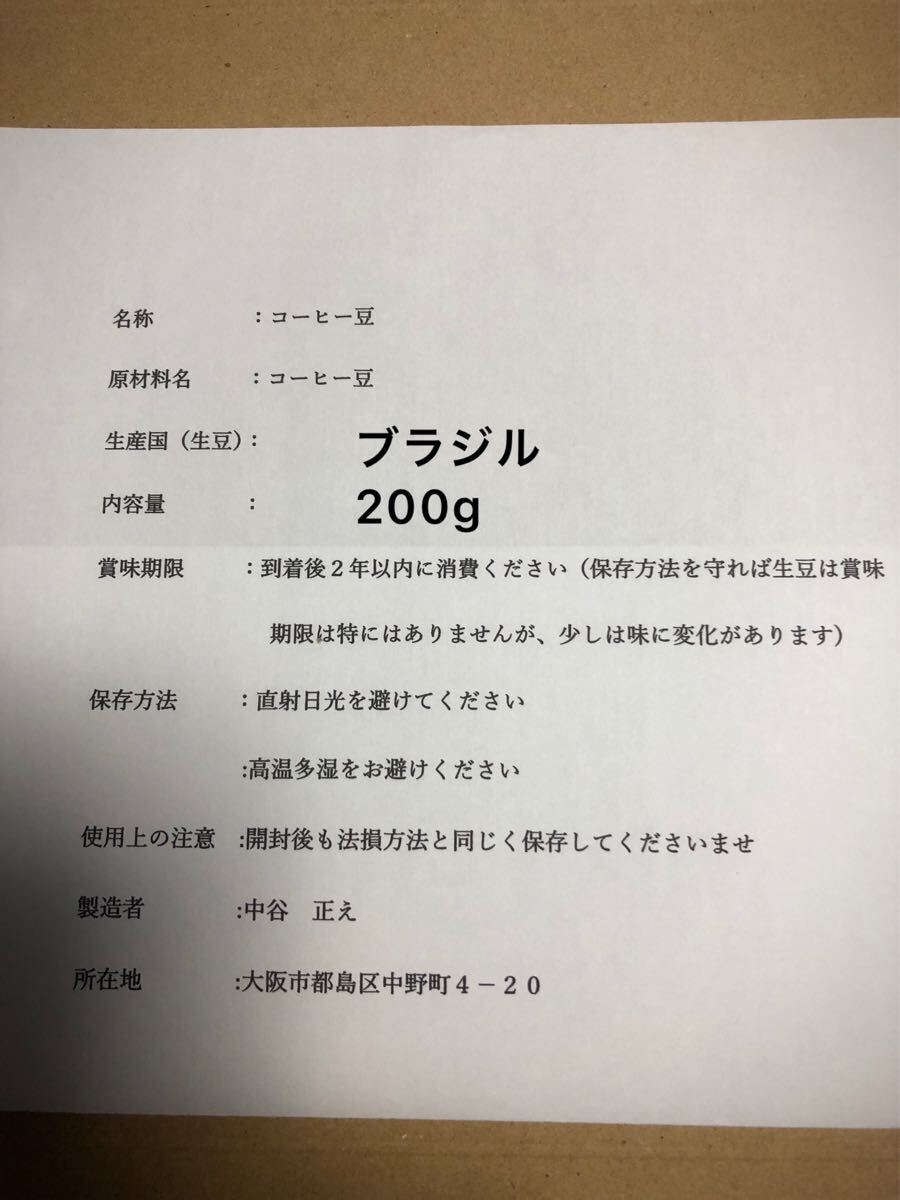 名称　：コーヒー豆
原材料名　：コーヒー豆
生産国（生豆）：　ブラジル
内容量　：　200g
賞味期限　：到着後２年以内に消費ください（保存方法を守れば生豆は賞味
期限は特にはありませんが、少しは味に変化があります）
保存方法　：直射日光を避けてください
:高温多湿をお避けください
使用上の注意　:開封後も法損方法と同じく保存してくださいませ
製造者　:中谷　正え
所在地　:大阪市都島区中野町４－２０